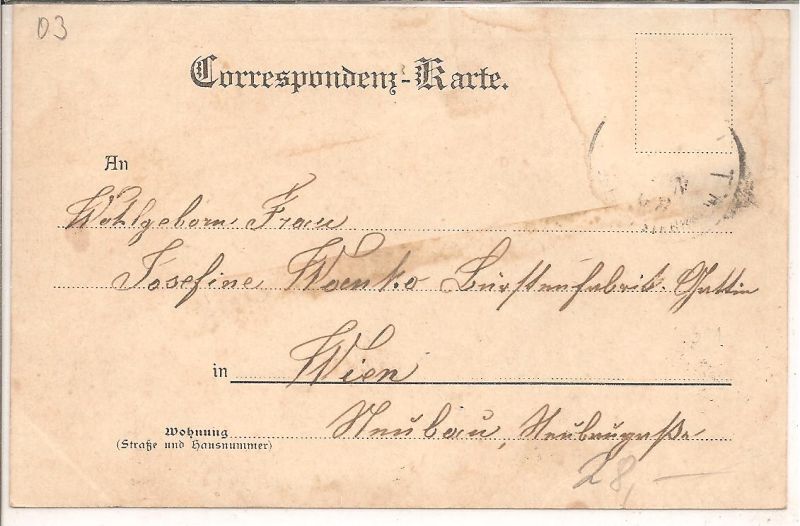 03
Correspondenz-Karte.
An
Wohlgeborn Frau
Josefine Woenko Bürstenfabrik. Gattin
in Wien
Wohnung Neubau, Neubaugaße
(Straße und Hausnummer)
28,—